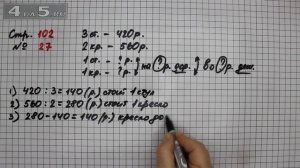 Стр. 102
№ 27
3 ст. – 420р.
2 кр. – 560р.
1 ст. – ? р.
1 кр. – ? р.
на ? р. дор. во ? р. деш.
1) 420 : 3 = 140 (р.) стоит 1 стул
2) 560 : 2 = 280 (р.) стоит 1 кресло
3) 280 – 140 = 140 (р.) кресло до